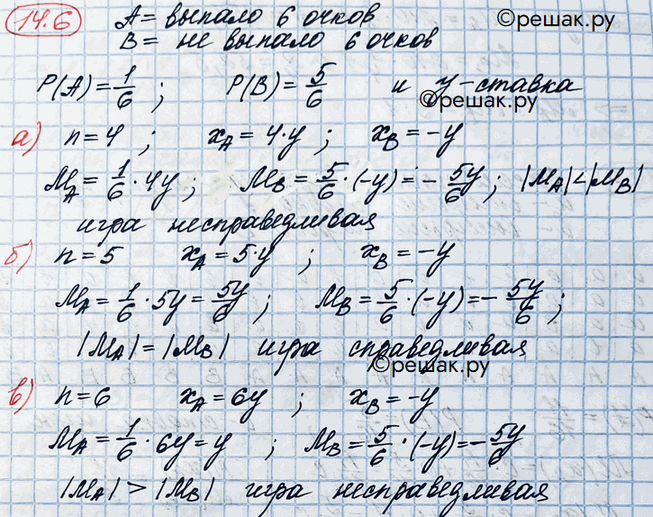 14.6 A = выпало 6 очков ©решак.ру
B = не выпало 6 очков
P(A) = 1/6 ; P(B) = 5/6 и y - ставка
©решак.ру
а) n = 4 ; x_A = 4·y ; x_B = -y
M_A = 1/6 · 4y ; M_B = 5/6 · (-y) = - 5y/6 ; |M_A| < |M_B|
игра несправедливая
б) n = 5 x_A = 5·y ; x_B = -y
M_A = 1/6 · 5y = 5y/6 ; M_B = 5/6 · (-y) = - 5y/6 ;
|M_A| = |M_B| игра справедливая
©решак.ру
в) n = 6 x_A = 6y ; x_B = -y
M_A = 1/6 · 6y = y ; M_B = 5/6 · (-y) = - 5y/6
|M_A| > |M_B| игра несправедливая